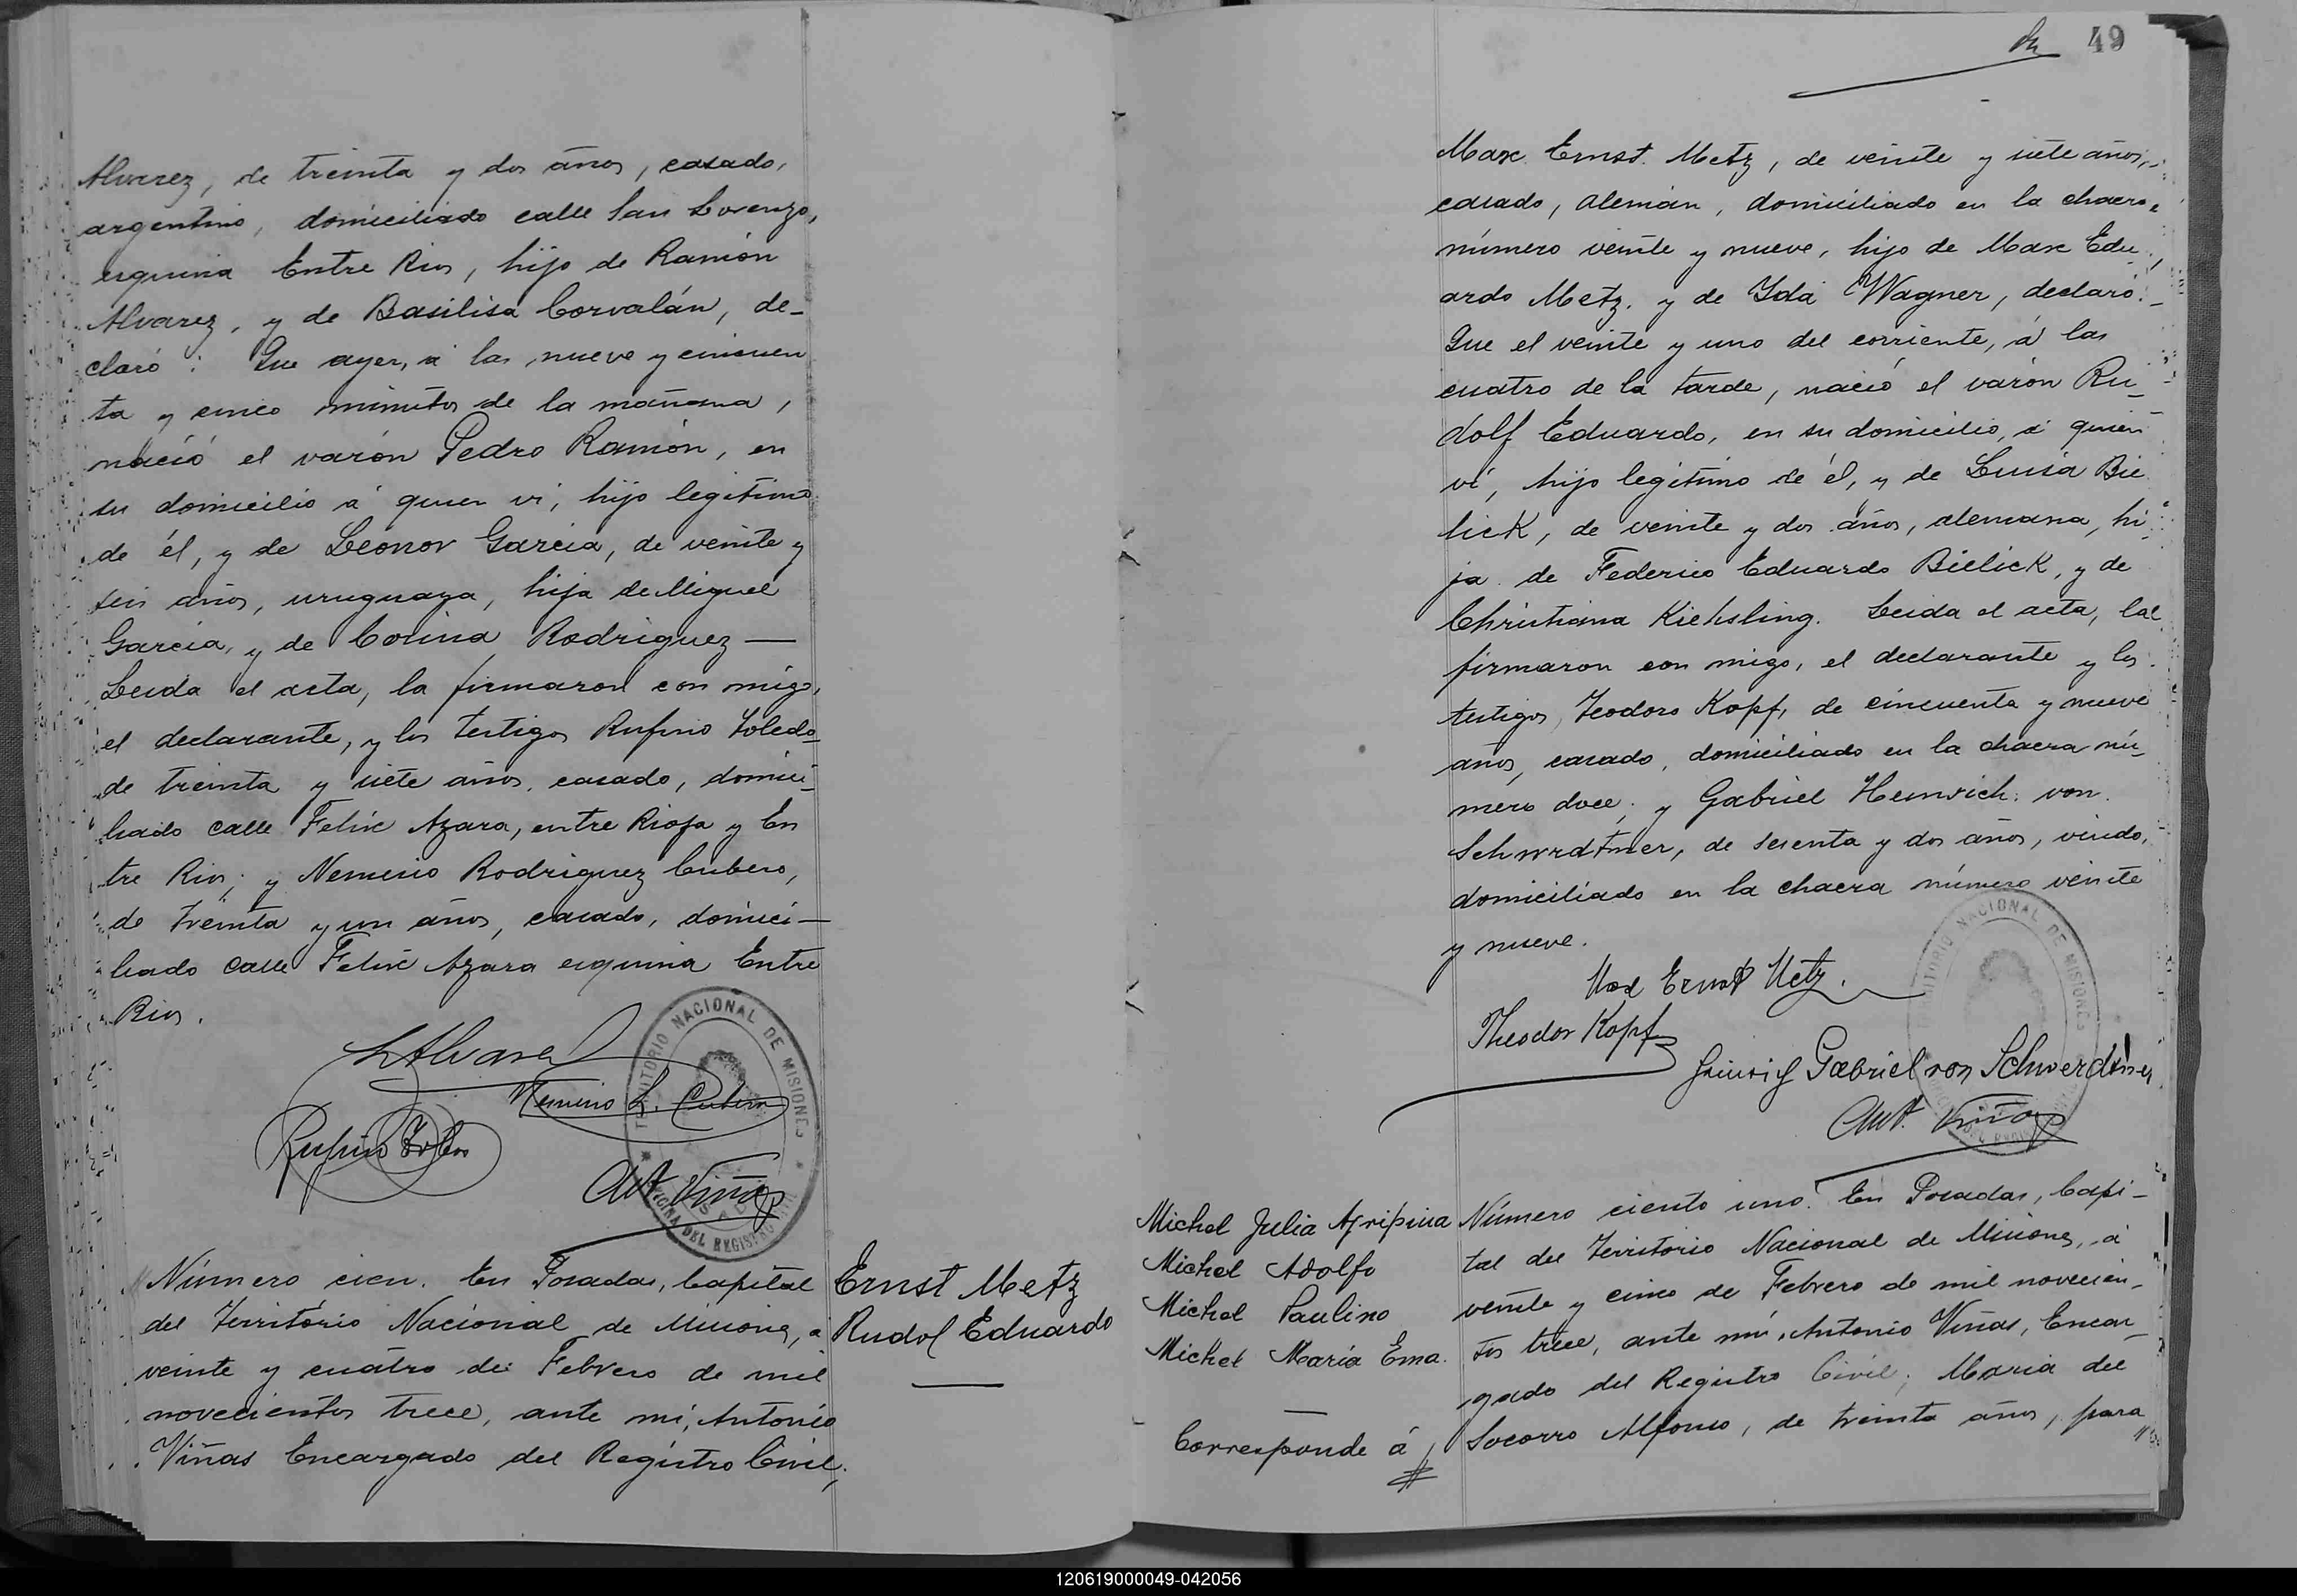 Alvarez, de treinta y dos años, casado,
argentino, domiciliado calle San Lorenzo,
esquina Entre Rios, hijo de Ramón
Alvarez, y de Basilisa Corvalán, de-
claró: Que ayer, á las nueve y cincuen
ta y cinco minutos de la mañana,
nació el varón Pedro Ramón, en
su domicilio á quien ví, hijo legítimo
de él, y de Leonor García, de veinte y
seis años, uruguaya, hija de Miguel
García, y de Corina Rodriguez —
Leida el acta, la firmaron con migo,
el declarante, y los testigos Rufino Toledo
de treinta y siete años, casado, domici-
liado calle Felix Azara, entre Rioja y En
tre Rios; y Nemesio Rodriguez Cubero,
de treinta y un años, casado, domici—
liado calle Felix Azara esquina Entre
Rios.
Alvarez
Nemesio R. Cubero
Rufino Toledo
Ant. Viñas
TERRITORIO NACIONAL DE MISIONES
OFICINA DEL REGISTRO CIVIL
Número cien. En Posadas, Capital
del Territorio Nacional de Misiones, á
veinte y cuatro de Febrero de mil
novecientos trece, ante mí, Antonio
Viñas Encargado del Registro Civil,
Ernst Metz
Rudolf Eduardo
49
Max Ernst. Metz, de veinte y siete años,
casado, alemán, domiciliado en la chacra
número veinte y nueve, hijo de Max Edu
ardo Metz, y de Ida Wagner, declaró:
Que el veinte y uno del corriente, á las
cuatro de la tarde, nació el varón Ru
dolf Eduardo, en su domicilio, á quien
ví, hijo legítimo de él, y de Luisa Bie
lick, de veinte y dos años, alemana, hi
ja de Federico Eduardo Bielick, y de
Christiana Kiehsling. Leida el acta, la
firmaron con migo, el declarante y los
testigos, Teodoro Kopf, de cincuenta y nueve
años, casado, domiciliado en la chacra nú-
mero doce; y Gabriel Heinrich von
Schwrdtner, de sesenta y dos años, viudo,
domiciliado en la chacra número veinte
y nueve.
Max Ernst Metz.
Theodor Kopf
Heinrich Gabriel von Schwerdtner
Ant. Viñas
TERRITORIO NACIONAL DE MISIONES
DEL REGISTRO
Michel Julia Agripina
Michel Adolfo
Michel Paulino
Michel María Ema.
Corresponde á
Número ciento uno. En Posadas, Capi-
tal del Territorio Nacional de Misiones, á
veinte y cinco de Febrero de mil novecien-
tos trece, ante mí, Antonio Viñas, Encar
gado del Registro Civil; Maria del
Socorro Alfonso, de treinta años, para
120619000049-042056